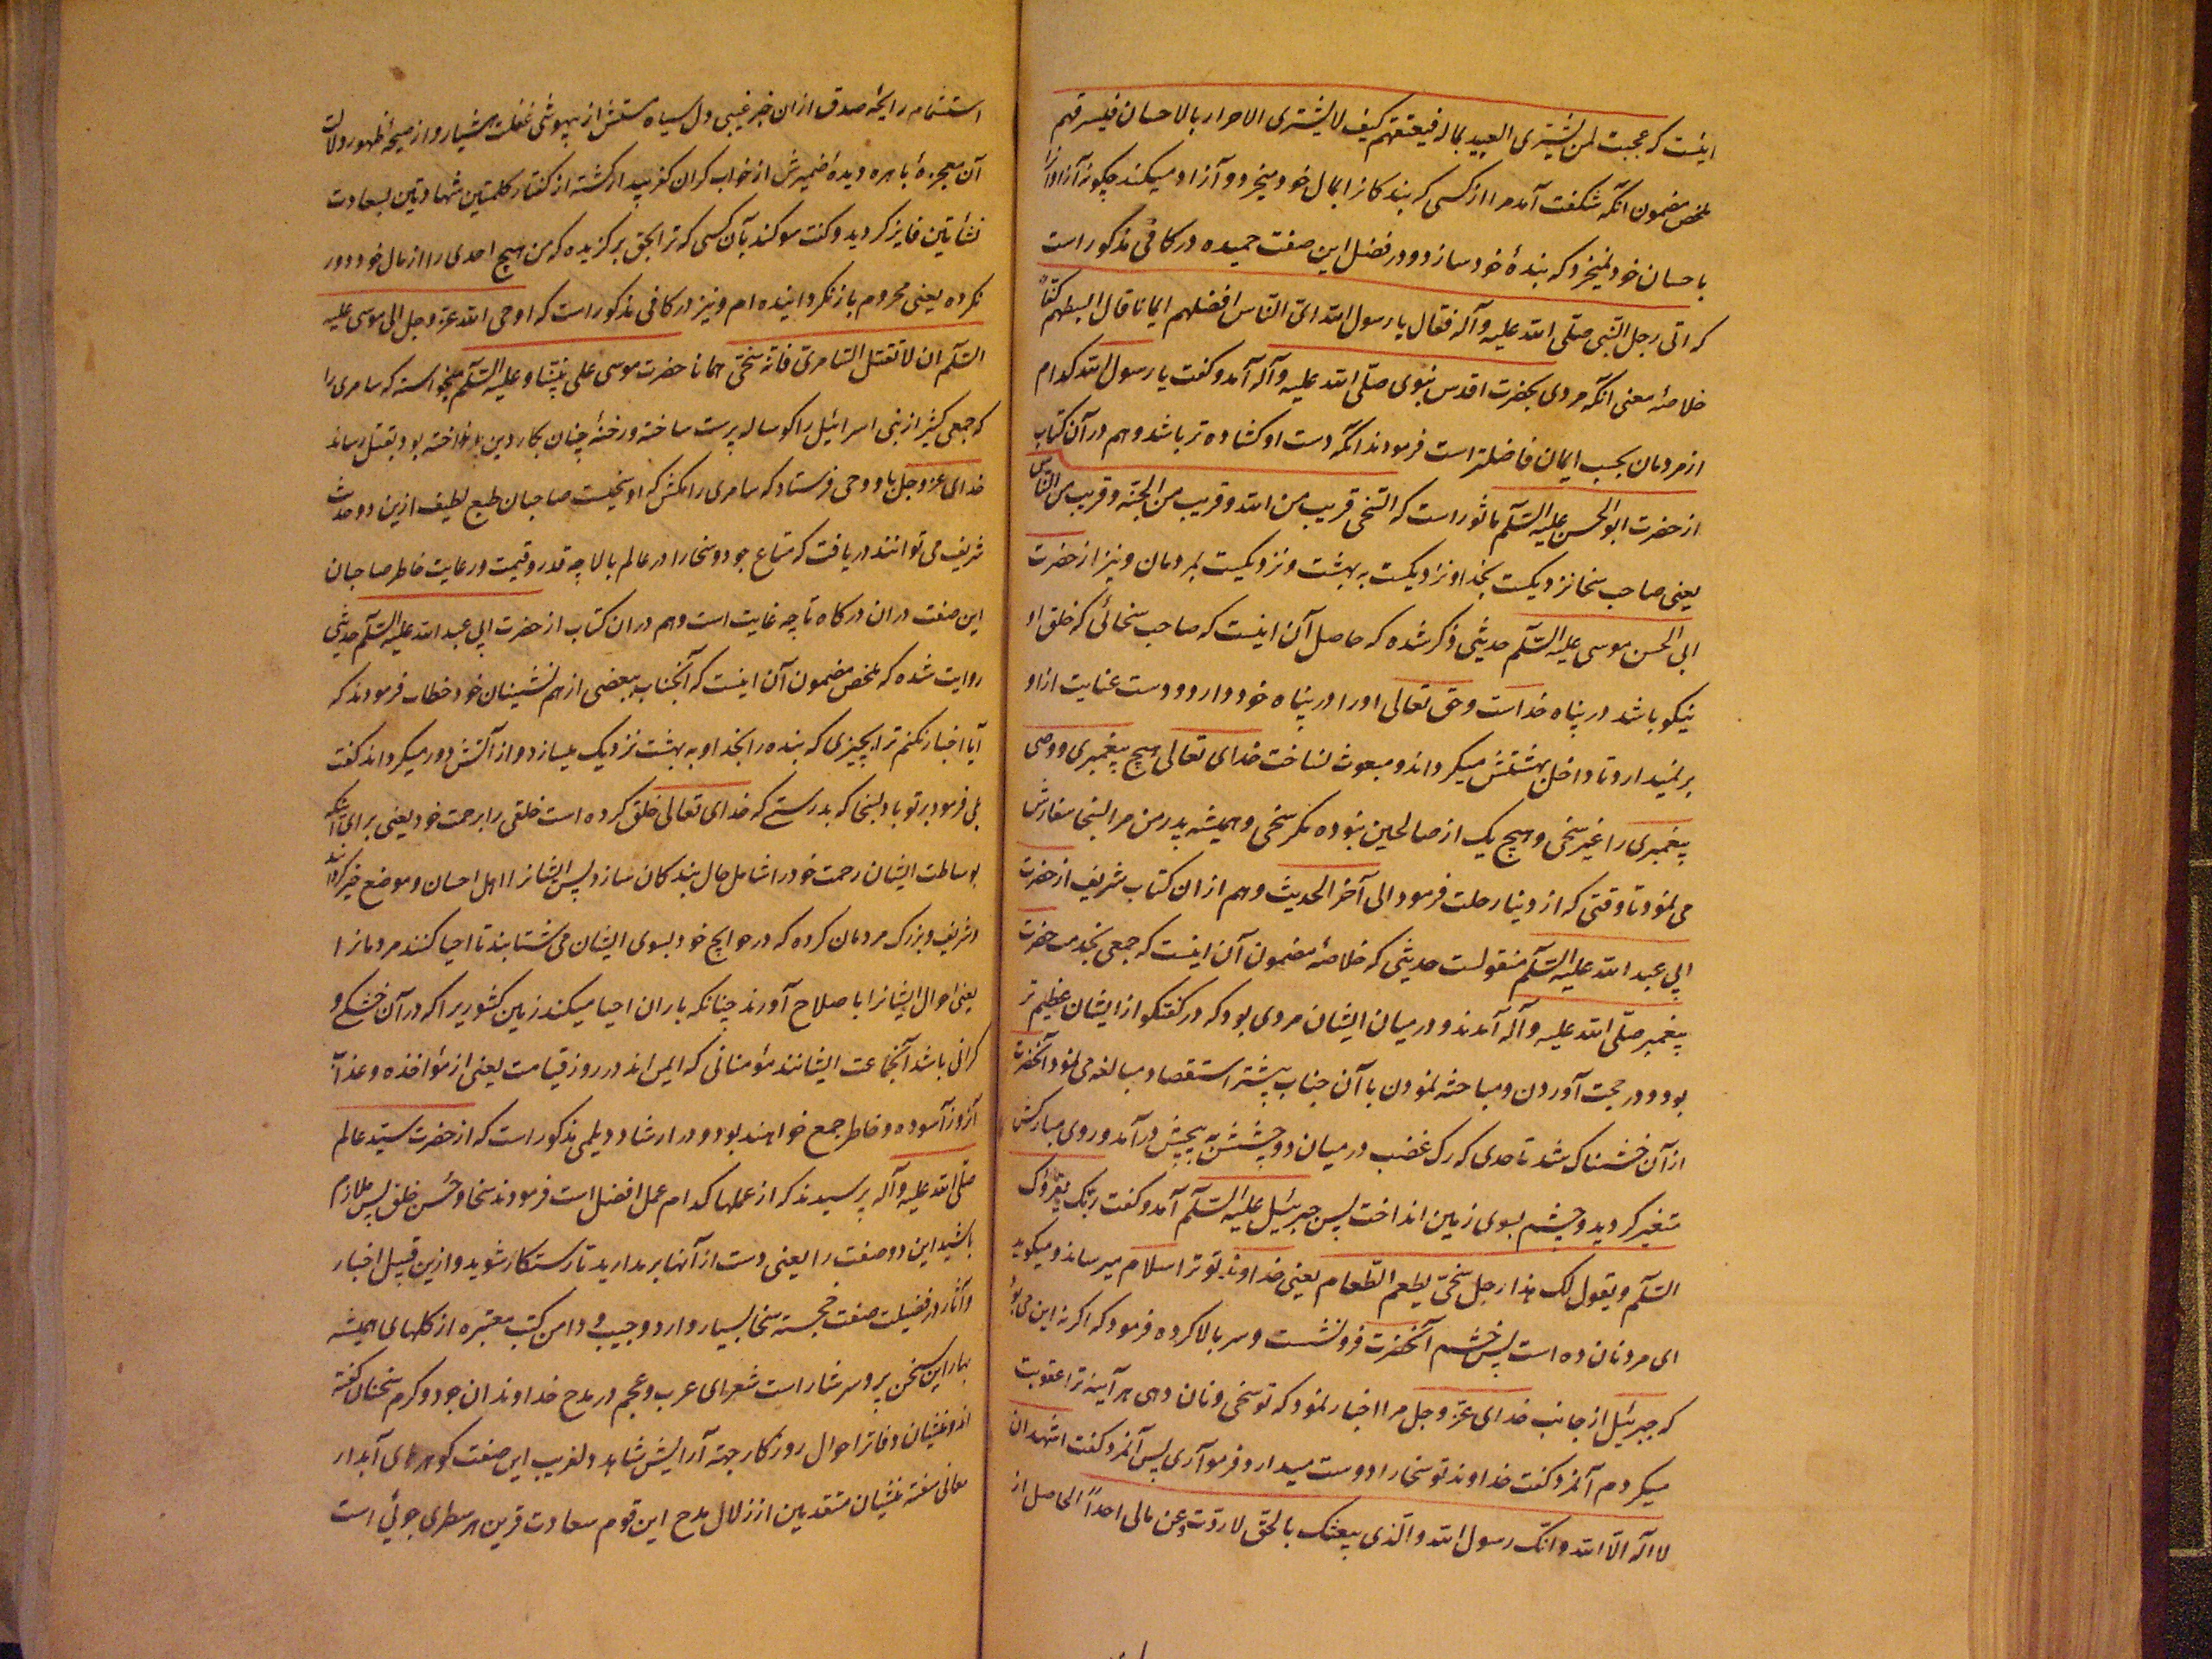 اینست که عجبت لمن یشتری العبید بماله فیعتقهم کیف لا یشتری الاحرار بالاحسان فیسترقهم
ملخص مضمون انکه شکفت آمد مرا از کسی که بندکانرا بمال خود میخرد و آزاد میکند چکونه آزادانرا
باحسان خود نمیخرد که بندۀ خود سازد و در فضل این صفت حمیده در کافی مذکور است
که اتی رجل النبی صلّی الله علیه وآله فقال یا رسول الله ای النّاس افضلهم ایمانا قال ابسطهم کفّاً
خلاصۀ معنی انکه مردی بحضرت اقدس نبوی صلّی الله علیه وآله آمد و کفت یا رسول الله کدام
از مردمان بحسب ایمان فاضلتر است فرمودند انکه دست او کشاده تر باشد و هم در آن کتاب
از حضرت ابو الحسن علیه السّلام ماثور است که السّخی قریب من الله و قریب من الجنّة و قریب من النّاس
یعنی صاحب سخا نزدیکست بخدا و نزدیکست به بهشت و نزدیکست بمردمان و نیز از حضرت
ابی الحسن موسی علیه السّلام حدیثی ذکر شده که حاصل آن اینست که صاحب سخائی که خلق او
نیکو باشد در پناه خداست و حق تعالی او را در پناه خود دارد و دست عنایت از او
بر نمیدارد تا داخل بهشتش میکرداند و مبعوث نساخت خدای تعالی هیچ پیغمبری و وصی
پیغمبری را غیر سخی و هیچ یک از صالحین نبوده مکر سخی و همیشه پدر من مرا بسخا سفارش
می نمود تا وقتی که از دنیا رحلت فرمود الی آخر الحدیث و هم از ان کتاب شریف از حضرت
ابی عبد الله علیه السّلام منقولست حدیثی که خلاصۀ مضمون آن اینست که جمعی بخدمت حضرت
پیغمبر صلّی الله علیه وآله آمدند و در میان ایشان مردی بود که در کفتکو از ایشان عظیم تر
بود و در حجت آوردن و مباحثه نمودن با آن جناب بیشتر استقصا و مبالغه می نمود آنحضرت
از آن خشمناک شد تا حدی که رک غضب در میان دو چشمش به پیچش درآمد و روی مبارکش
متغیر کردید و چشم بسوی زمین انداخت پس جبرئیل علیه السّلام آمد و کفت ربّک یقرؤک
السّلام و یقول لک هذا رجل سخیّ یطعم الطّعام یعنی خداوند تو ترا سلام میرساند و میکوید
ای مرد نان ده است پس خشم آنحضرت فرو نشست و سر بالا کرده فرمود که اکر نه این می بود
که جبرئیل از جانب خدای عزّ و جل مرا اخبار نمود که تو سخی و نان دهی هر آینه ترا عقوبت
میکردم آنمرد کفت خداوند تو سخا را دوست میدارد فرمود آری پس آنمرد کفت اشهد ان
لا اله الّا الله و انّک رسول الله و الّذی بعثک بالحق لا رددت عن مالی احداً الحاصل از
استشمام رایحۀ صدق از ان خبر غیبی دل سیاه مستش از بیهوشی غفلت هشیار و از صیحۀ ظهور دلالت
آن معجزۀ باهره دیدۀ ضمیرش از خواب کران کفر بیدار کشته از کفتار کلمتین شهادتین بسعادت
نشأتین فایز کردید و کفت سوکند بآن کسی که ترا بحق برکزیده که من هیچ احدی را از مال خود دور
نکرده یعنی محروم باز نکردانیده ام و نیز در کافی مذکور است که اوحی الله عزّ و جل الی موسی علیه
السّلام ان لا تقتل السّامری فانّه سخیّ همانا حضرت موسی علی نبیّنا و علیه السّلام میخواسته که سامری را
که جمعی کثیر از بنی اسرائیل را کوساله پرست ساخته و رخنۀ چنان بکار دین در انداخته بود بقتل رساند
خدای عزّ وجل باو وحی فرستاد که سامری را مکش که او سخیست صاحبان طبع لطیف ازین دو حدیث
شریف می توانند دریافت که متاع جود و سخا را در عالم بالا چه قدر و قیمت و رعایت خاطر صاحبان
این صفت در ان درکاه تا چه غایت است و هم در ان کتاب از حضرت ابی عبد الله علیه السّلام حدیثی
روایت شده که ملخص مضمون آن اینست که آنجناب ببعضی از هم نشینان خود خطاب فرمودند که
آیا اخبار نکنم ترا بچیزی که بنده را بخدا و به بهشت نزدیک میسازد و از آتش دور میکرداند کفت
بلی فرمود بر تو باد بسخا که بدرستی که خدای تعالی خلق کرده است خلقی را برحمت خود یعنی برای آنکه
بوساطت ایشان رحمت خود را شامل حال بندکان سازد پس ایشانرا اهل احسان و موضع خیر کردانید
و شریف و بزرک مردمان کرده که در حوایج خود بسوی ایشان می شتابند تا احیا کنند مردمانرا
یعنی احوال ایشانرا باصلاح آورند چنانکه باران احیا میکند زمین کشوریرا که در آن خشکی و
کرانی باشد آنجماعت ایشانند مؤمنانی که ایمن اند در روز قیامت یعنی از مؤاخذه و عذاب
آنروز آسوده و خاطر جمع خواهند بود و در ارشاد دیلمی مذکور است که از حضرت سیّد عالم
صلّی الله علیه وآله پرسیدند که از عملها کدام عمل افضل است فرمودند سخا و حُسن خلق پس ملازم
باشید این دو صفت را یعنی دست از آنها بر مدارید تا رستکار شوید و ازین قبیل اخبار
و آثار در فضیلت صفت خجستۀ سخا بسیار وارد و جیب و دامن کتب معتبره از کلهای همیشه
بهار این سخن پر و سرشار است شعرای عرب و عجم در مدح خداوندان جود و کرم سخنان کفته
اند و منشیان دفاتر احوال روزکار جهة آرایش شاهد دلفریب این صفت کوهرهای آبدار
معانی سفته منشیان متقدمین از زلال مدح این قوم سعادت قرین هر سطری جوئی است